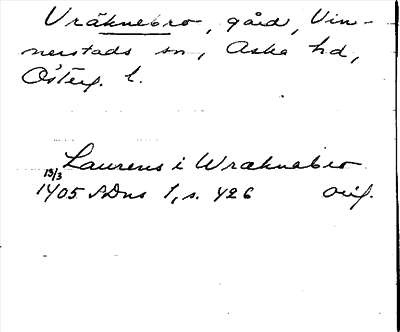 Vräknebro, gård, Vin-
nerstads sn, Aska hd,
Österg. l.
Laurens i Wraknabro
13/3
1405 SDns 1, s. 426 orig.